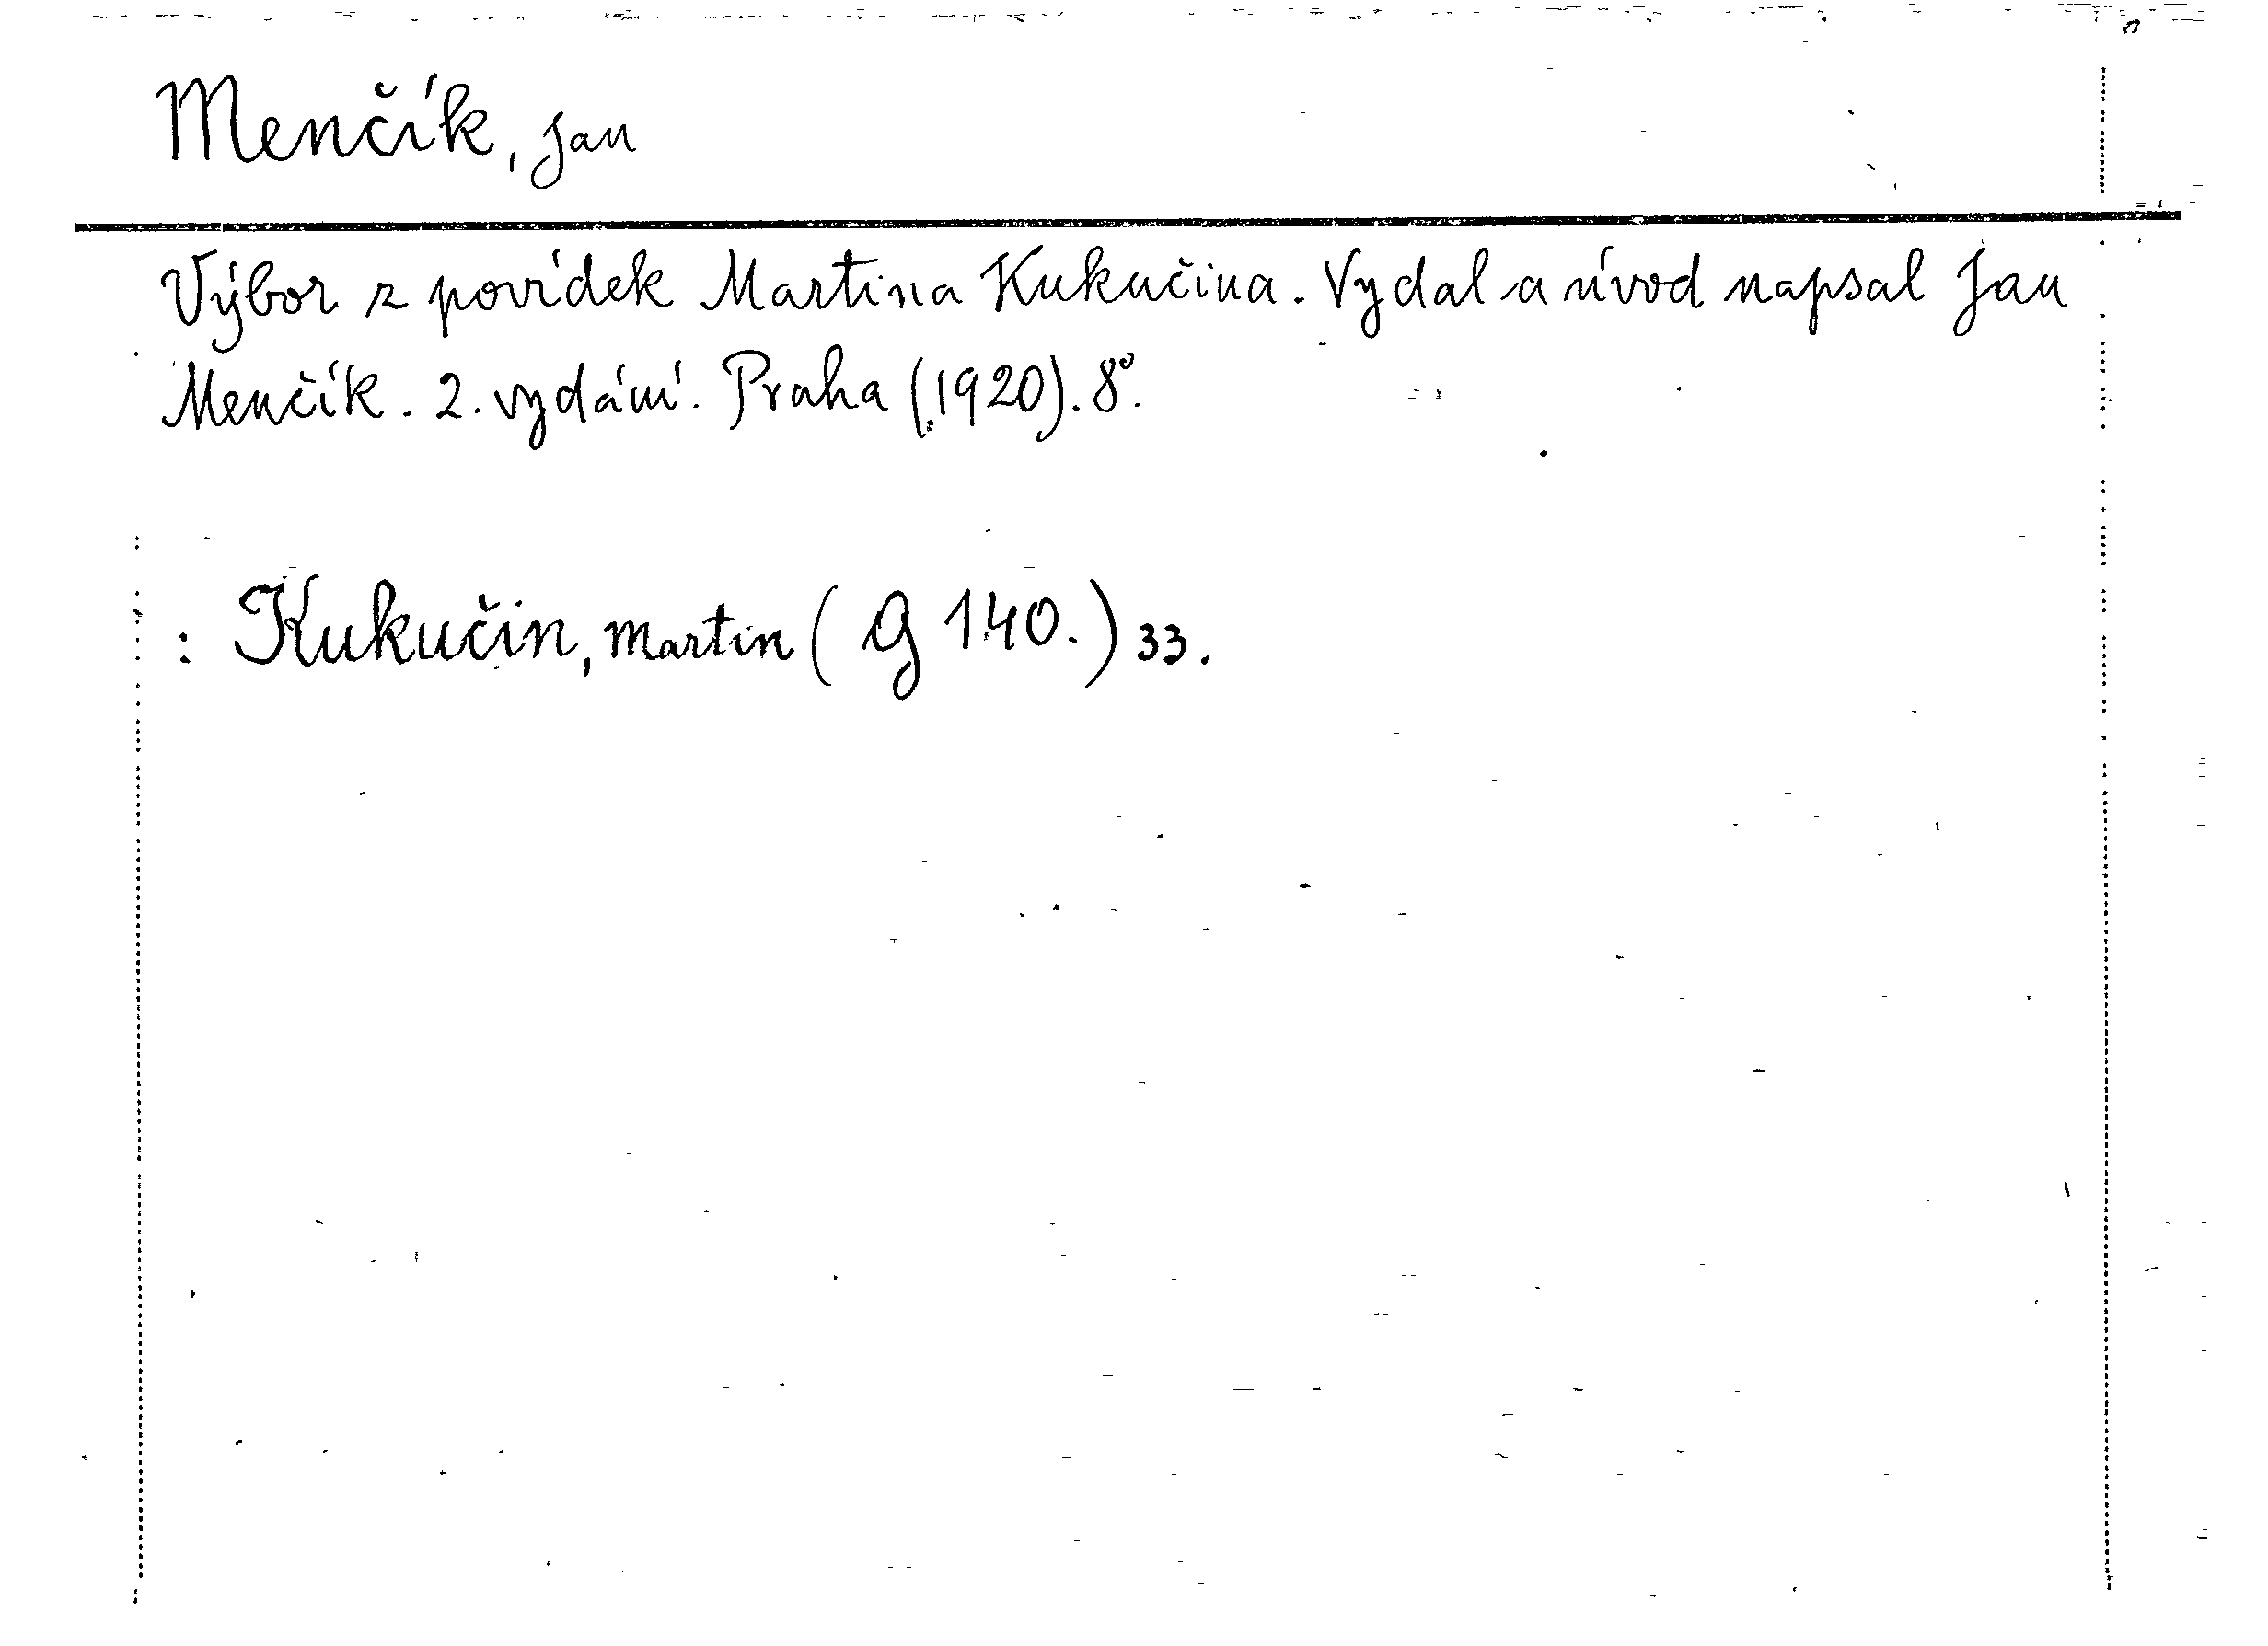 Menčík, Jan
Výbor z povídek Martina Kukučina. Vydal a úvod napsal Jan
Menčík. 2. vydání. Praha (1920). 8°.
: Kukučin, Martin (G 140.) 33.